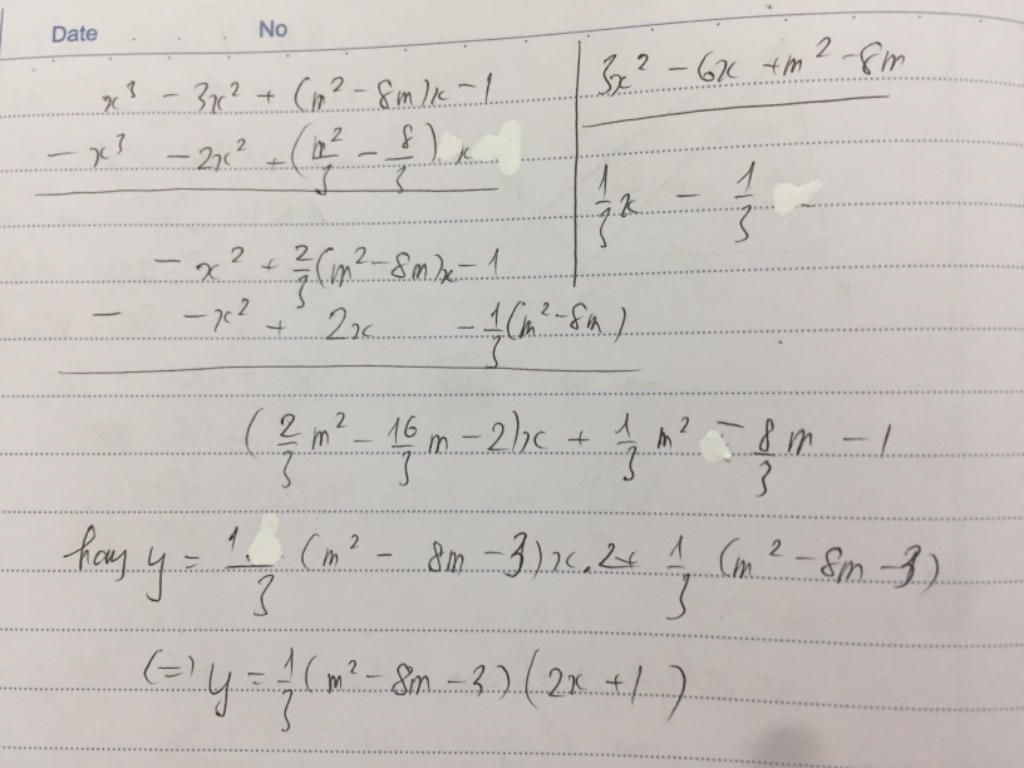 Date No
x³ - 3x² + (m² - 8m)x - 1 | 3x² - 6x + m² - 8m
- x³ - 2x² + (m²/3 - 8/3).x | 1/3 x - 1/3
- x² + 2/3(m² - 8m)x - 1
- -x² + 2x - 1/3(m² - 8m)
(2/3 m² - 16/3 m - 2)x + 1/3 m² - 8/3 m - 1
hay y = 1/3 (m² - 8m - 3)x.2 + 1/3 (m² - 8m - 3)
(=) y = 1/3 (m² - 8m - 3)(2x + 1)